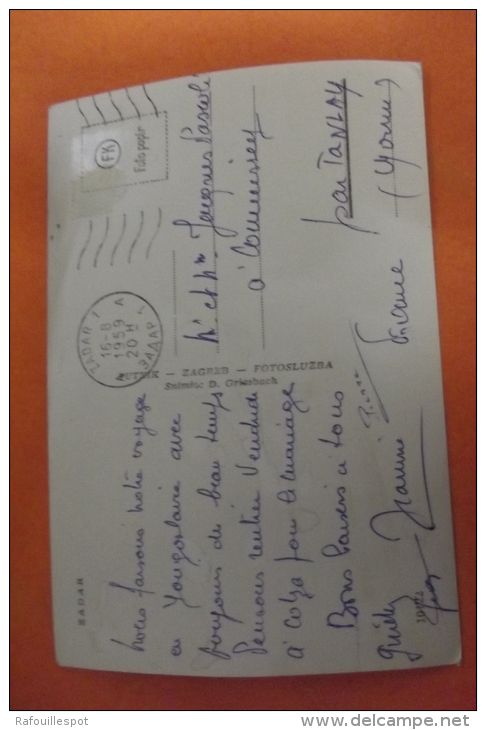 ZADAR
Nous faisons notre voyage
en Yougoslavie avec
toujours du beau temps
Pensons rentrer Vendredi
à pour le mariage
Bons baisers à tous
Jeannine
PUTNIK — ZAGREB — FOTOSLUŽBA
Snimio: D. Griesbach
ZADAR 1
16-8
1959 A
20 H
ЗАДАР
FK
Foto papir
Mr et Mme Jacques Pascoli
à Commissey
par TANLAY
(Yonne)
France
Rafouillespot
www.delcampe.net